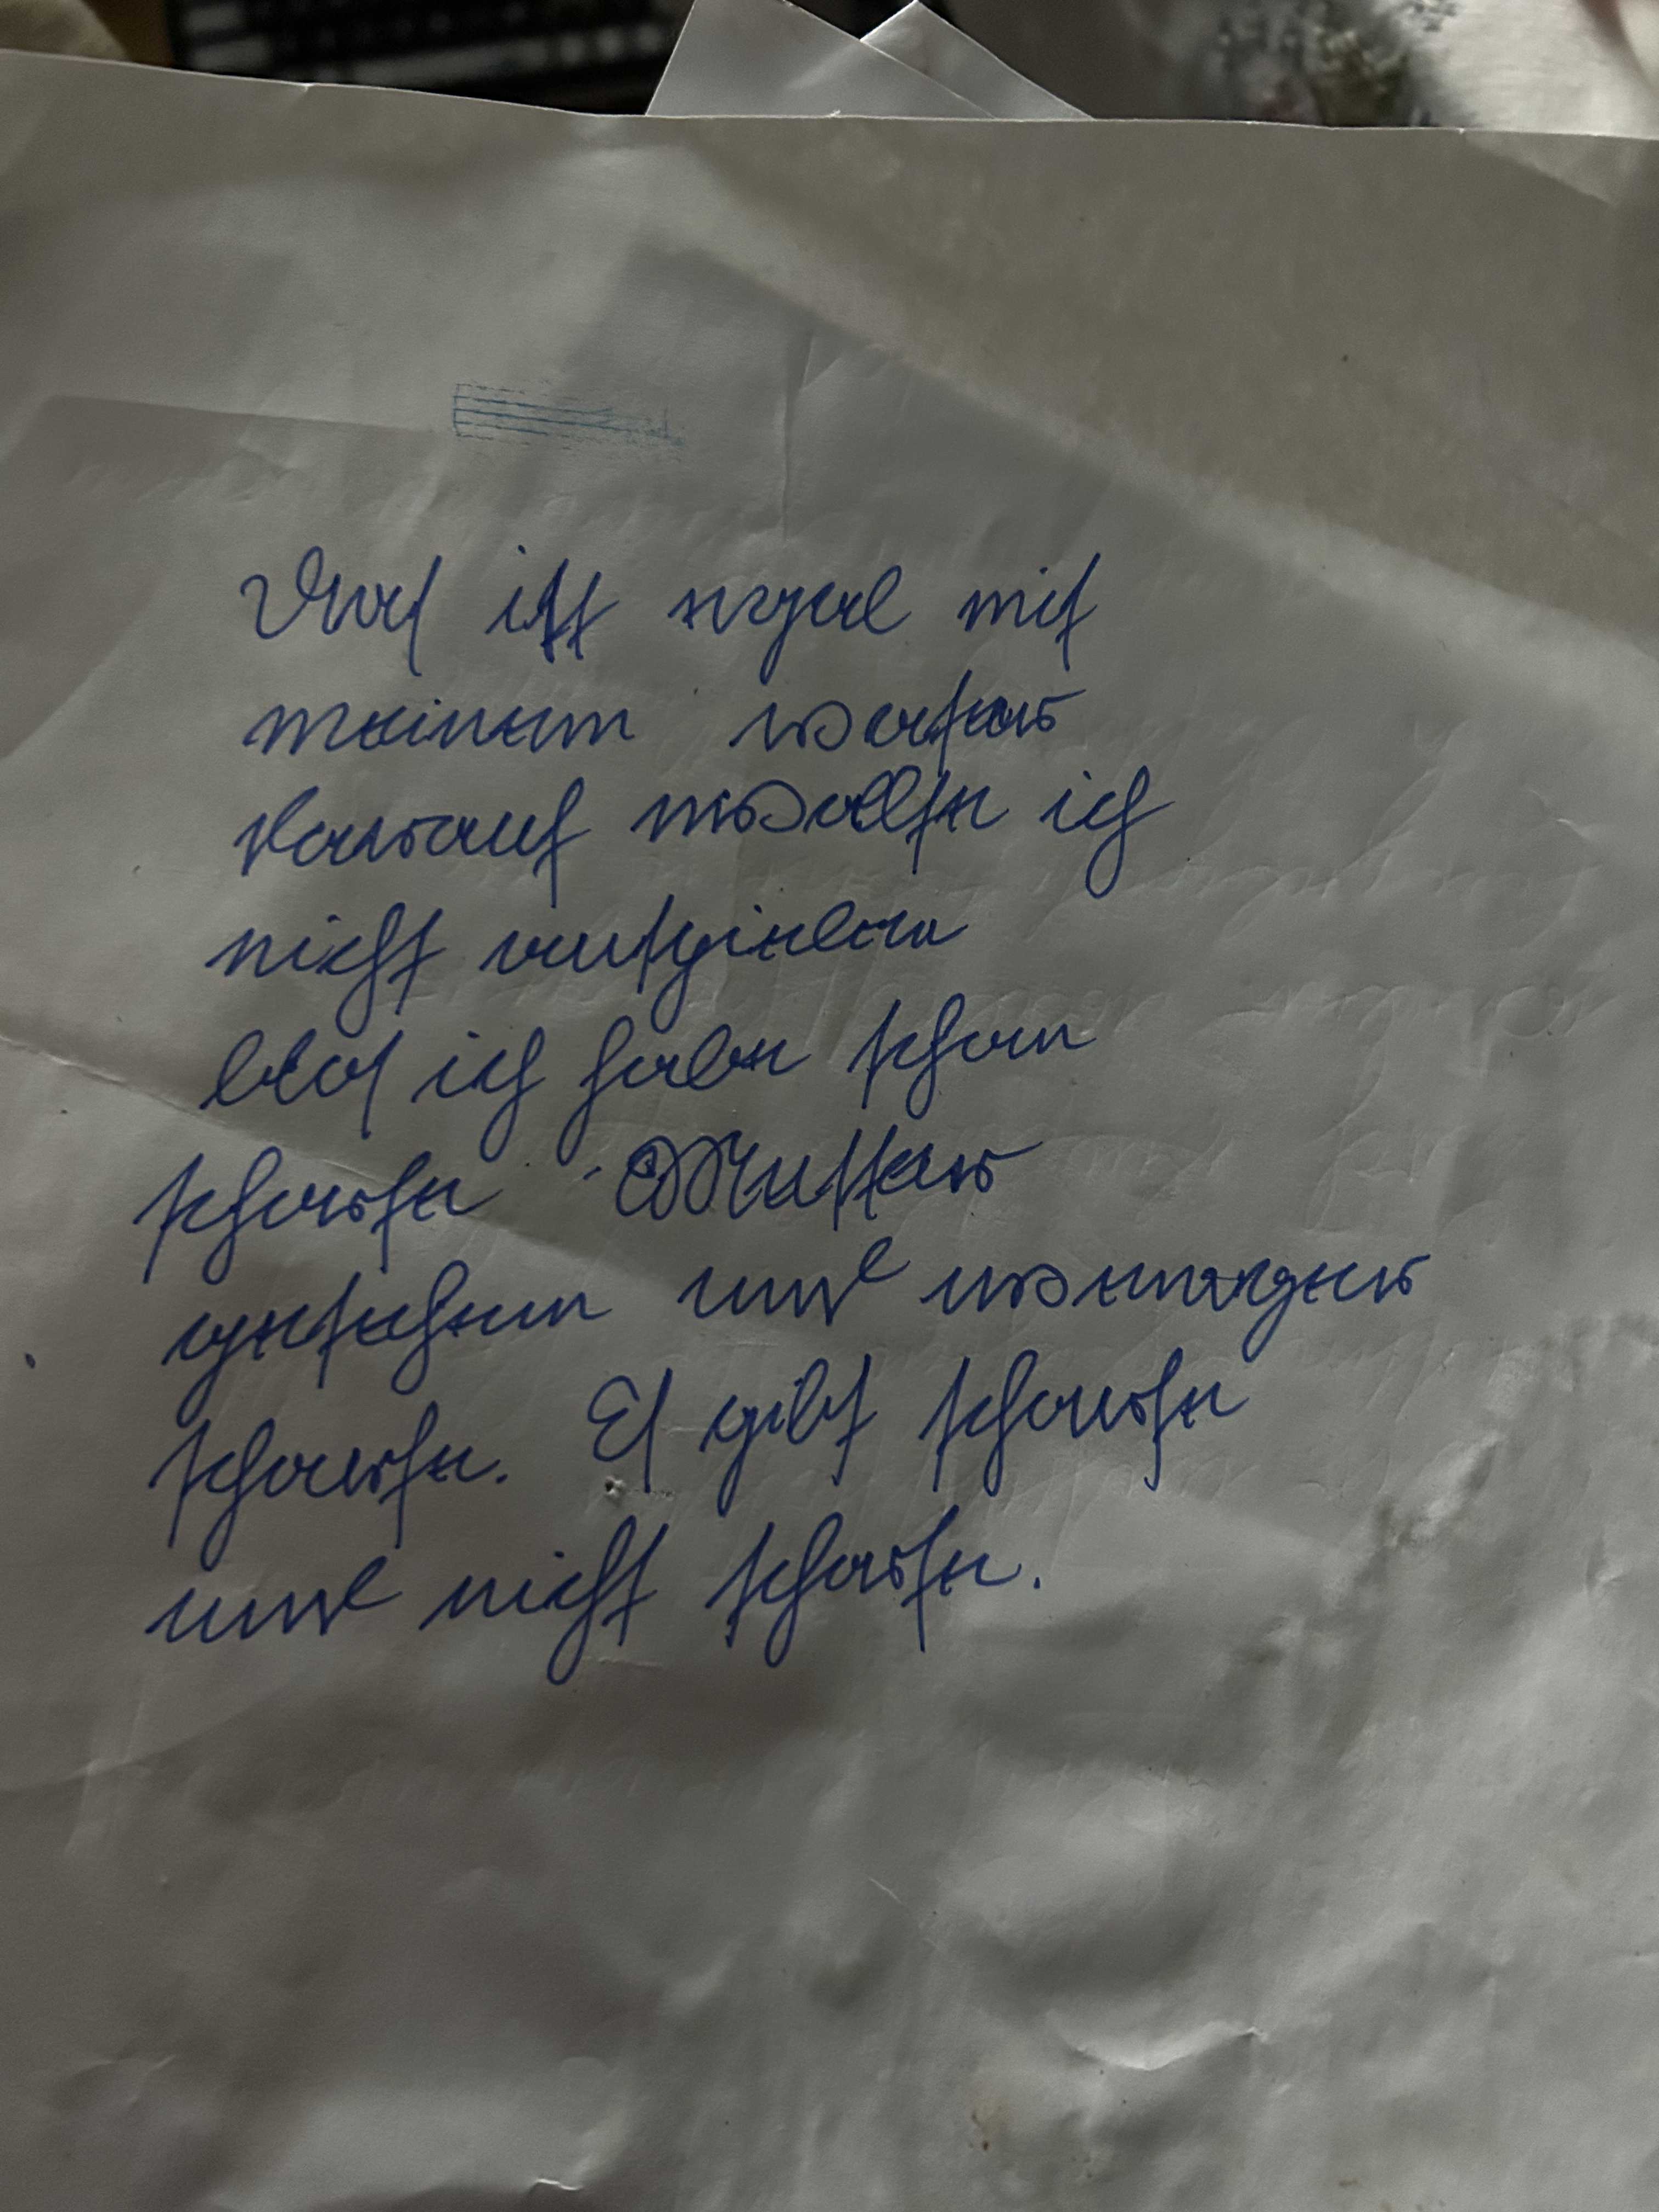 Das ist egal mit
meinem vater
darauf wollte ich
nicht
blos ich habe schon
scharfe Mutter
gesehen und weniger
scharfe. Es gibt scharfe
und nicht scharfe.